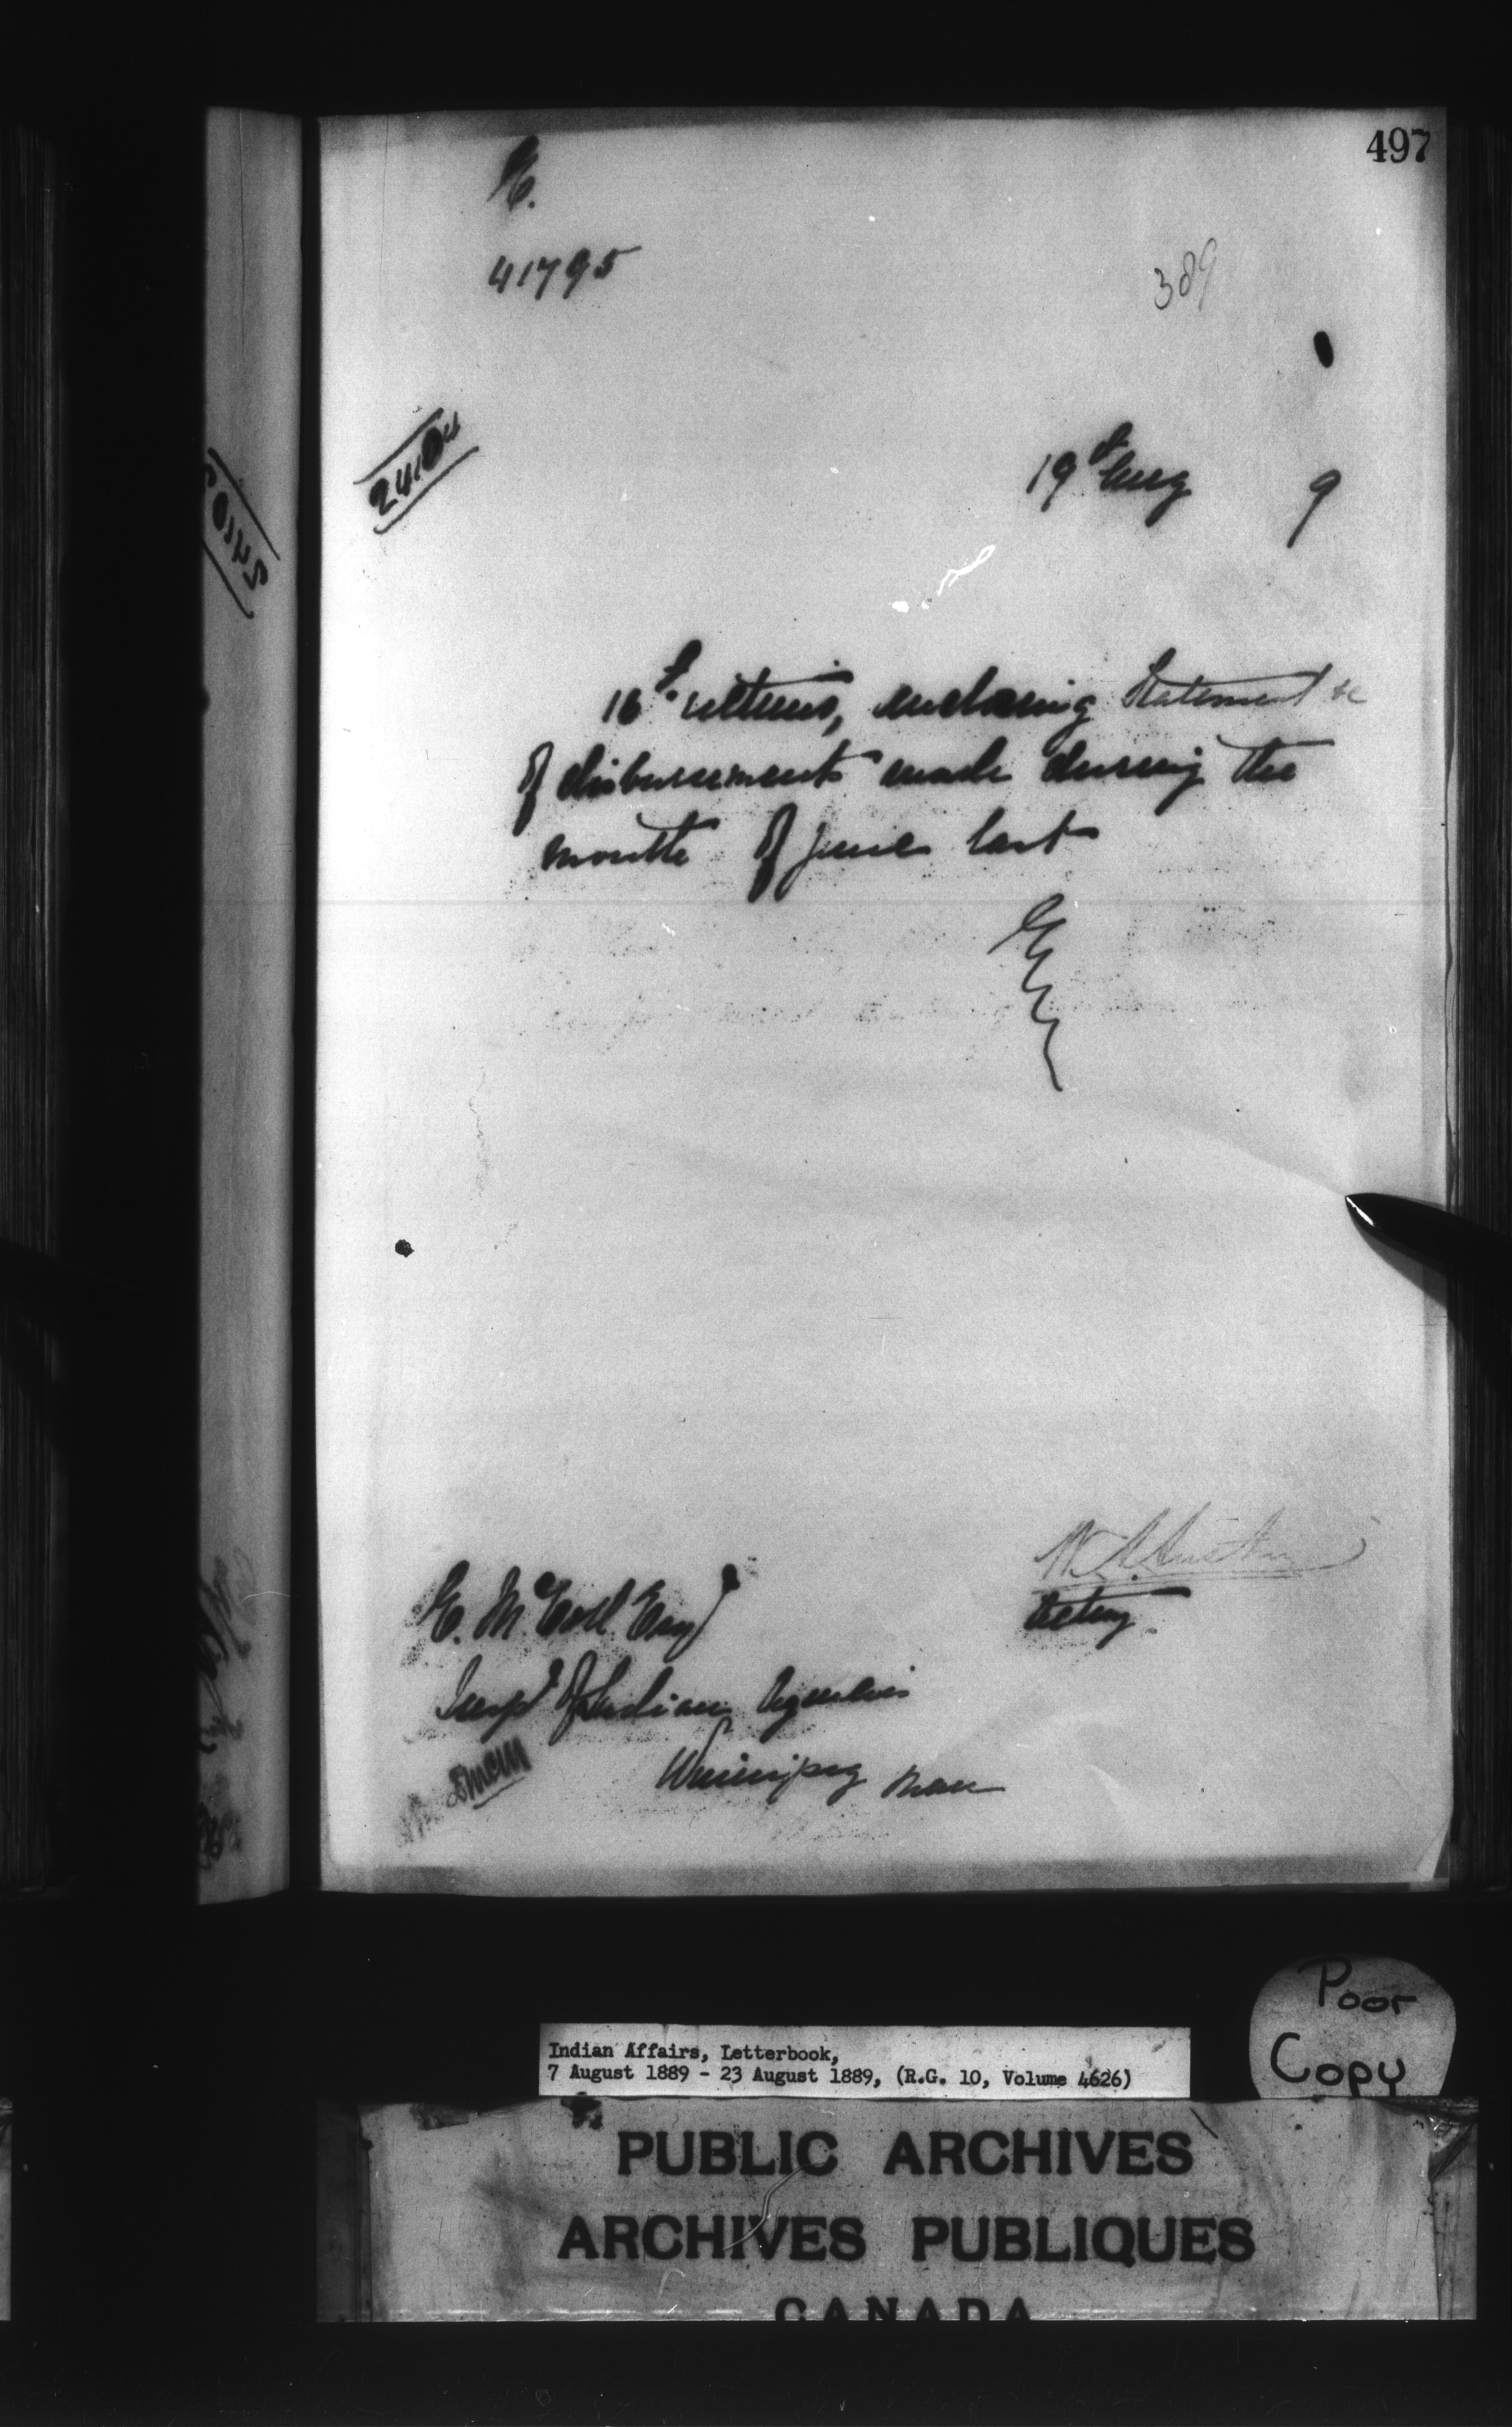 497
E.
41795
389
2410
19th Aug 9
16th ultimo, enclosing Statement &c
of disbursements made during the
month of June last
W. A. Austin
Acting
E. McColl Esqr
Insp. of Indian Agencies
Winnipeg Man
Poor
Copy
Indian Affairs, Letterbook,
7 August 1889 - 23 August 1889, (R.G. 10, Volume 4626)
PUBLIC ARCHIVES
ARCHIVES PUBLIQUES
CANADA